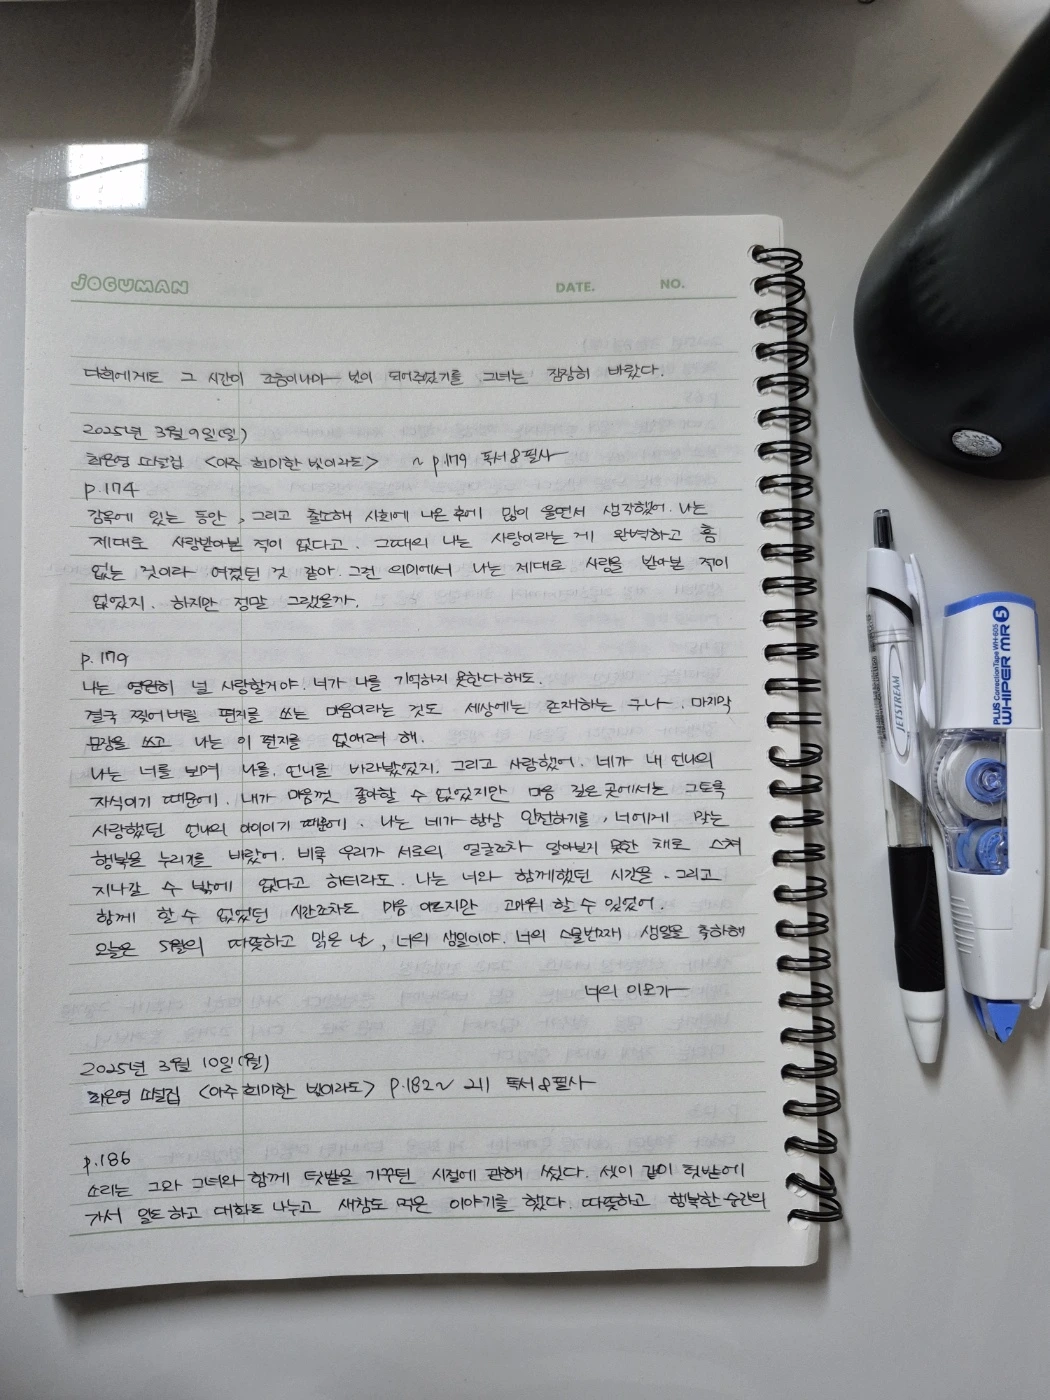 JOGUMAN DATE. NO.
다희에게도 그 시간이 조금이나마 빛이 되어주었기를 그녀는 잠잠히 바랐다.
2025년 3월 9일(일)
최은영 소설집 <아주 희미한 빛이라도> ~ p.179 독서&필사
p.174
감옥에 있는 동안, 그리고 출소해 사회에 나온 후에 많이 울면서 생각했어. 나는
제대로 사랑받아본 적이 없다고. 그때의 나는 사랑이라는 게 완벽하고 흠
없는 것이라 여겼던 것 같아. 그런 의미에서 나는 제대로 사랑을 받아본 적이
없었지. 하지만 정말 그랬을까.
p.179
나는 영원히 널 사랑할거야. 너가 나를 기억하지 못한다해도.
결국 찢어버릴 편지를 쓰는 마음이라는 것도 세상에는 존재하는 구나. 마지막
문장을 쓰고 나는 이 편지를 없애려 해.
나는 너를 보며 나를. 언니를 바라봤었지. 그리고 사랑했어. 네가 내 언니의
자식이기 때문에. 내가 마음껏 좋아할 수 없었지만 마음 깊은 곳에서는 그토록
사랑했던 언니의 아이이기 때문에. 나는 네가 항상 안전하기를, 너에게 맞는
행복을 누리기를 바랐어. 비록 우리가 서로의 얼굴조차 알아보지 못한 채로 스쳐
지나갈 수 밖에 없다고 하더라도. 나는 너와 함께했던 시간을. 그리고
함께 할 수 없었던 시간조차도 마음 아프지만 고마워 할 수 있었어.
오늘은 5월의 따뜻하고 맑은 날, 너의 생일이야. 너의 스물번째 생일을 축하해
너의 이모가
2025년 3월 10일(월)
최은영 소설집 <아주 희미한 빛이라도> p.182~ 211 독서&필사
p.186
소리는 그와 그녀와 함께 텃밭을 가꾸던 시절에 관해 썼다. 셋이 같이 텃밭에
가서 일도하고 대화도 나누고 새참도 먹은 이야기를 했다. 따뜻하고 행복한 순간의
JETSTREAM
PLUS Correction Tape WH-605
WHIPER MR 5